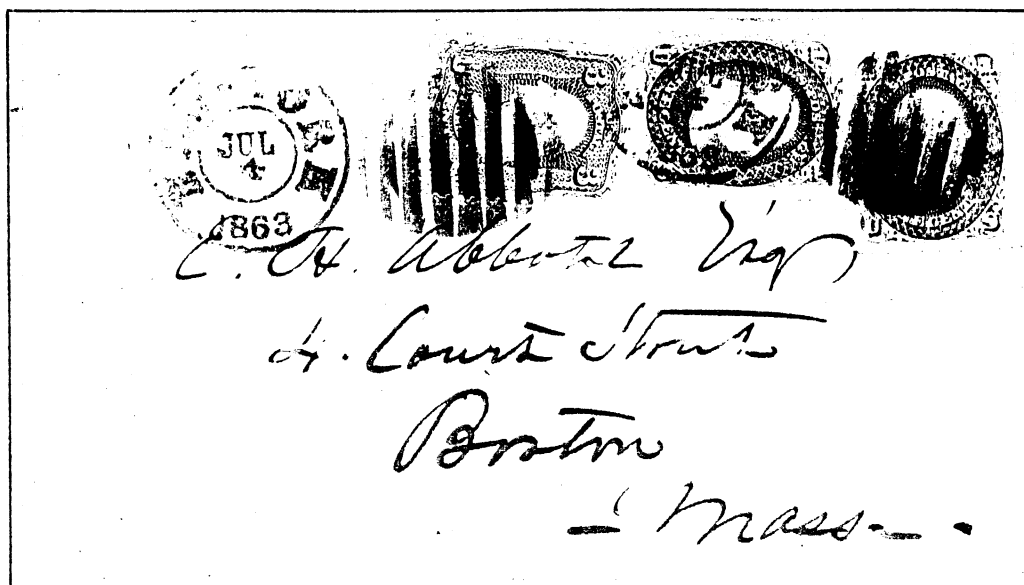 JUL
4
1863
C. H. Abbott Esq
4. Court Street
Boston
Mass.